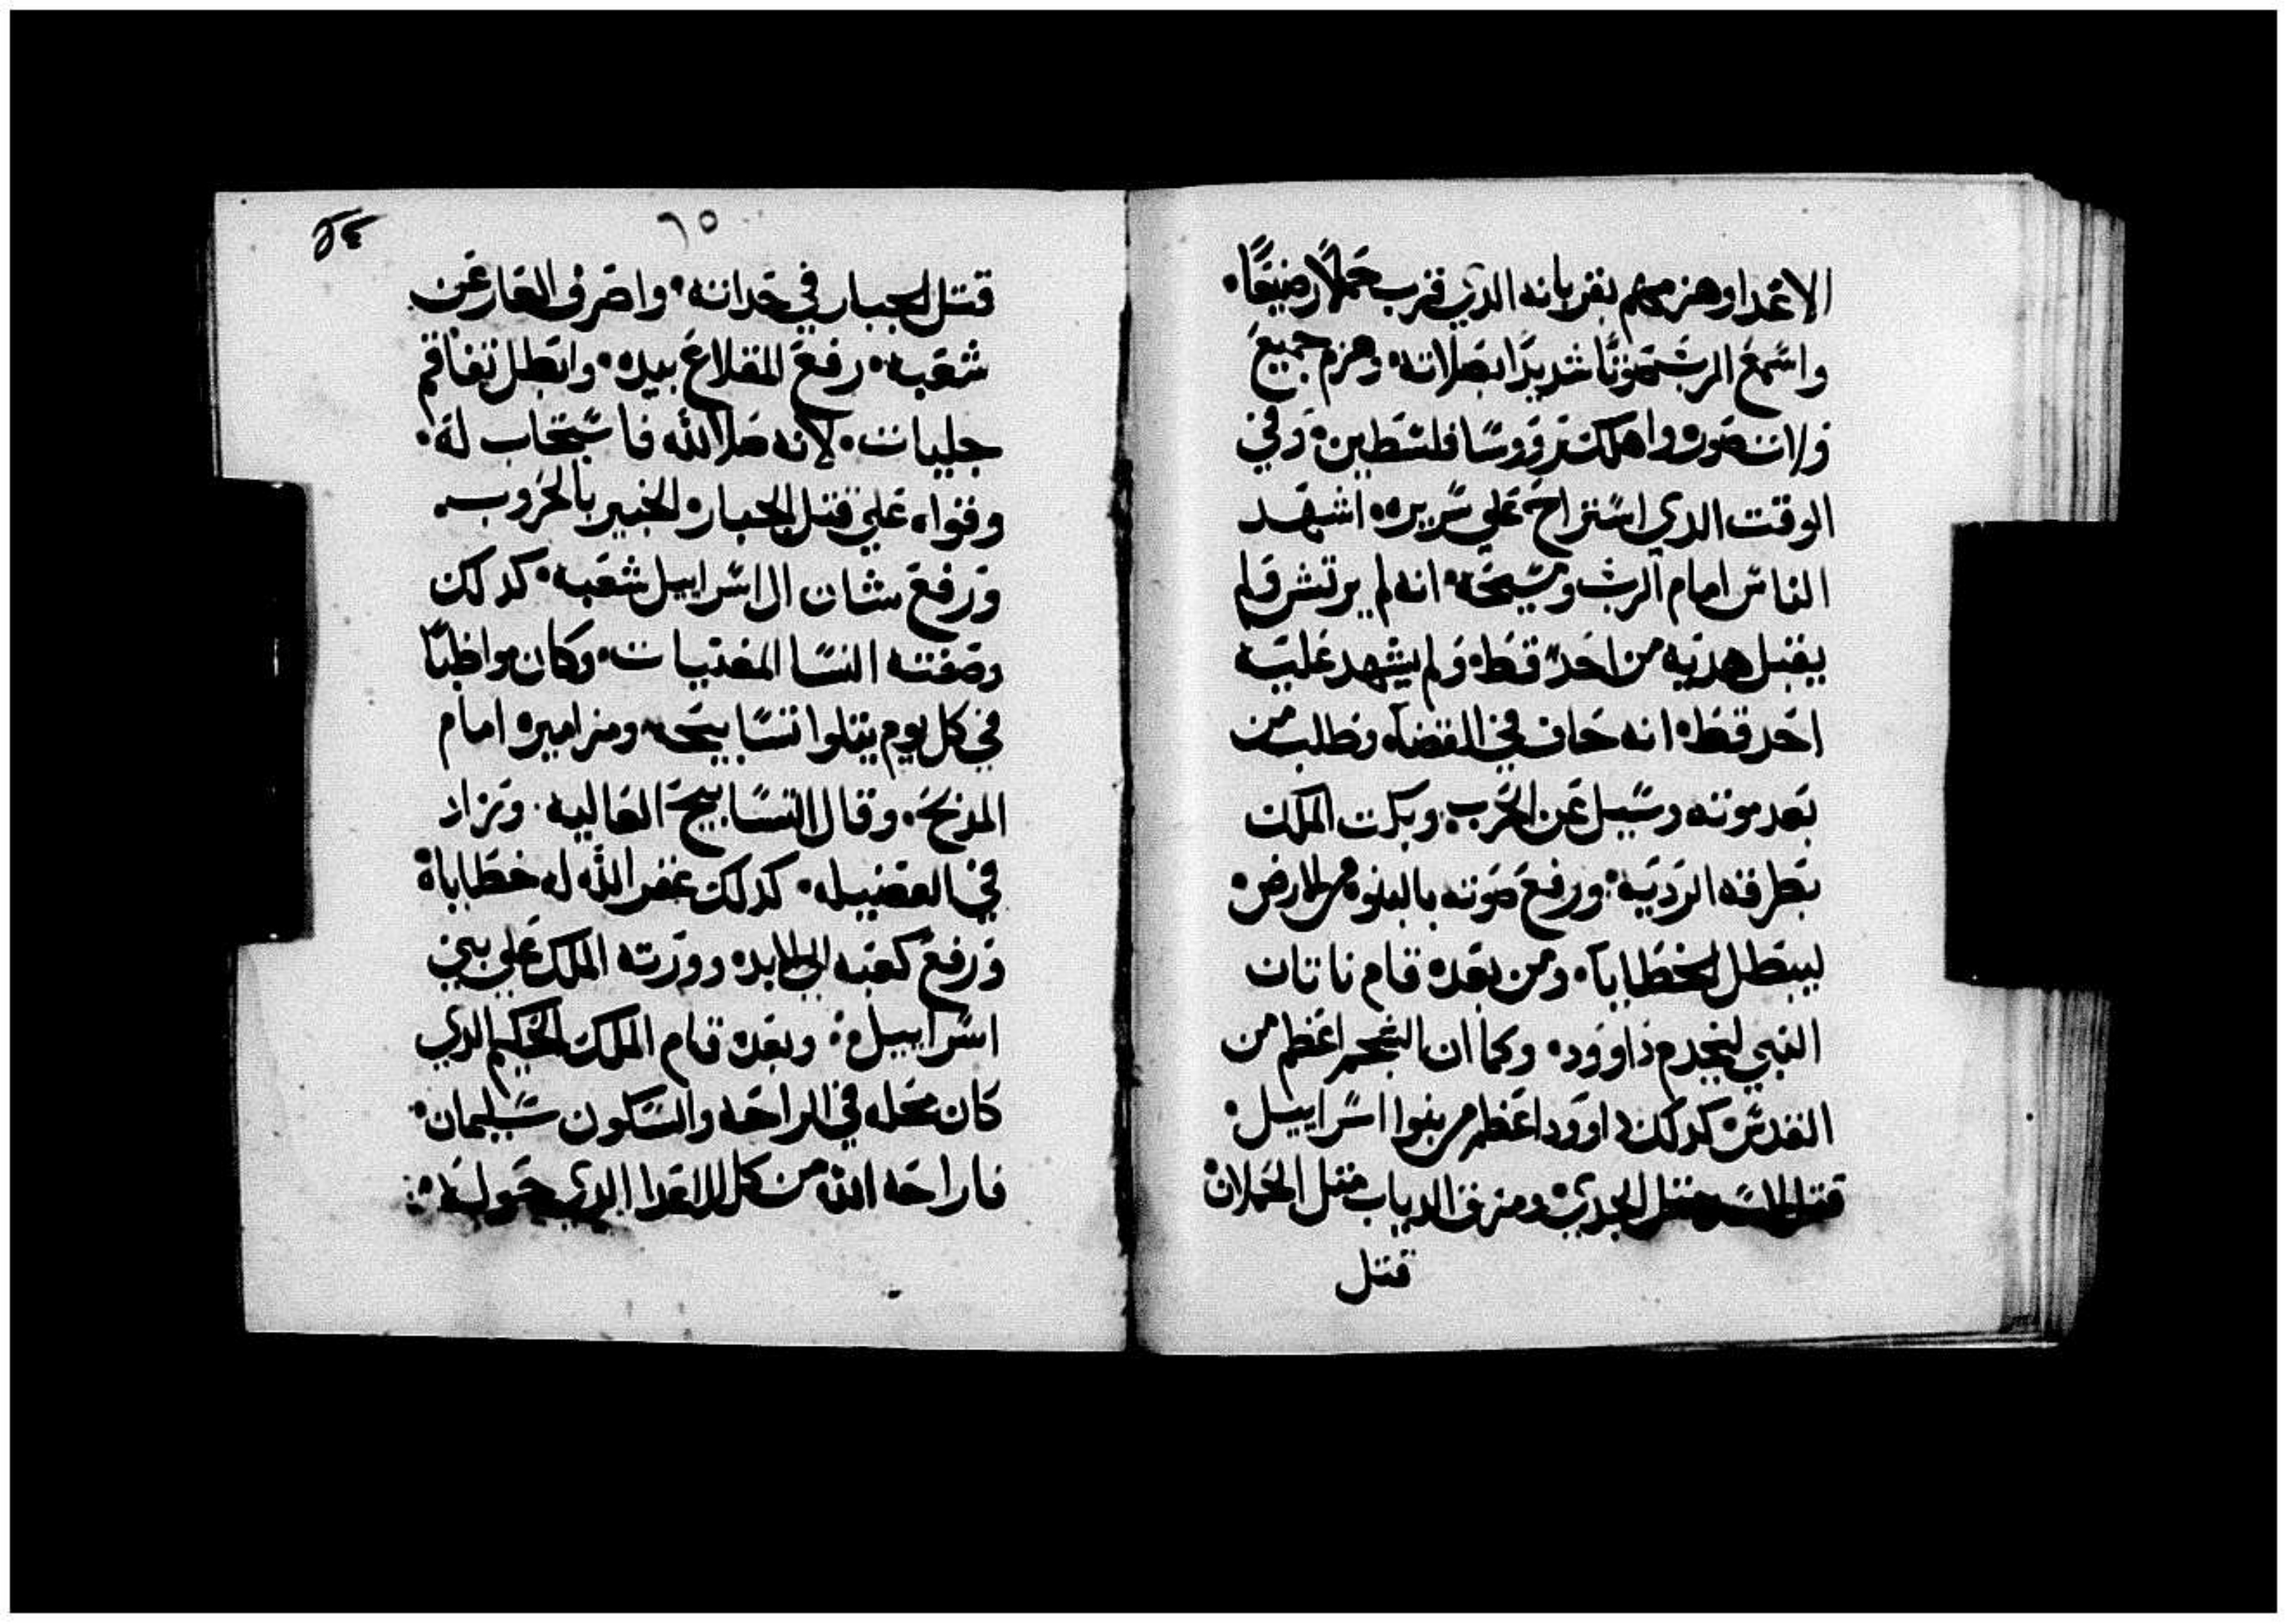 الاعدا وهزمهم بقربانه الدي قرب حملا رضيعا.
واسمع الرب صوتا شديدا بصلاته. وهزم جميع
ولات صور. واهلك رووسا فلسطين. وفي
الوقت الدي استراح علي سريره. اشهد
الناس امام الرب ومسيحه. انه لم يرتش ولم
يقبل هديه من احد قط. ولم يشهد عليه
احد قط. انه حاف في القضا. وطلب من
بعد موته وسيل عن الحرب. وبكت الملك
بطرقته الرديه. ورفع صوته بالبنوه من الارض.
ليبطل الخطايا. ومن بعده قام ناتان
النبي ليخدم داوود. وكما ان الشحم اعظم من
القدس. كدلك داوود اعظم من بنوا اسراييل.
قتل الاسد متل الجدي. ومزق الدياب متل الحملان.
قتل
٦٥
قتل الجبار في حداته. واصرف العار عن
شعبه. رفع المقلاع بيده. وابطل نفاقم
جليات. لانه صلا لله فاستجاب له.
وقواه علي قتل الجبار الخبير بالحروب.
ورفع شان ال اسراييل شعبه. كدلك
وصفته النسا المغنيات. وكان مواظبا
في كل يوم يتلوا تسابيحه ومزاميره امام
المدبح. وقال التسابيح العاليه. وزاد
في الفضيله. كدلك غفر الله له خطاياه
ورفع كعبه الي الابد. وورته الملك علي بني
اسراييل. وبعده قام الملك الحكيم الدي
كان محله في الراحه والسكون سليمان.
فاراحه الله من كل الاعدا الدي حوله.